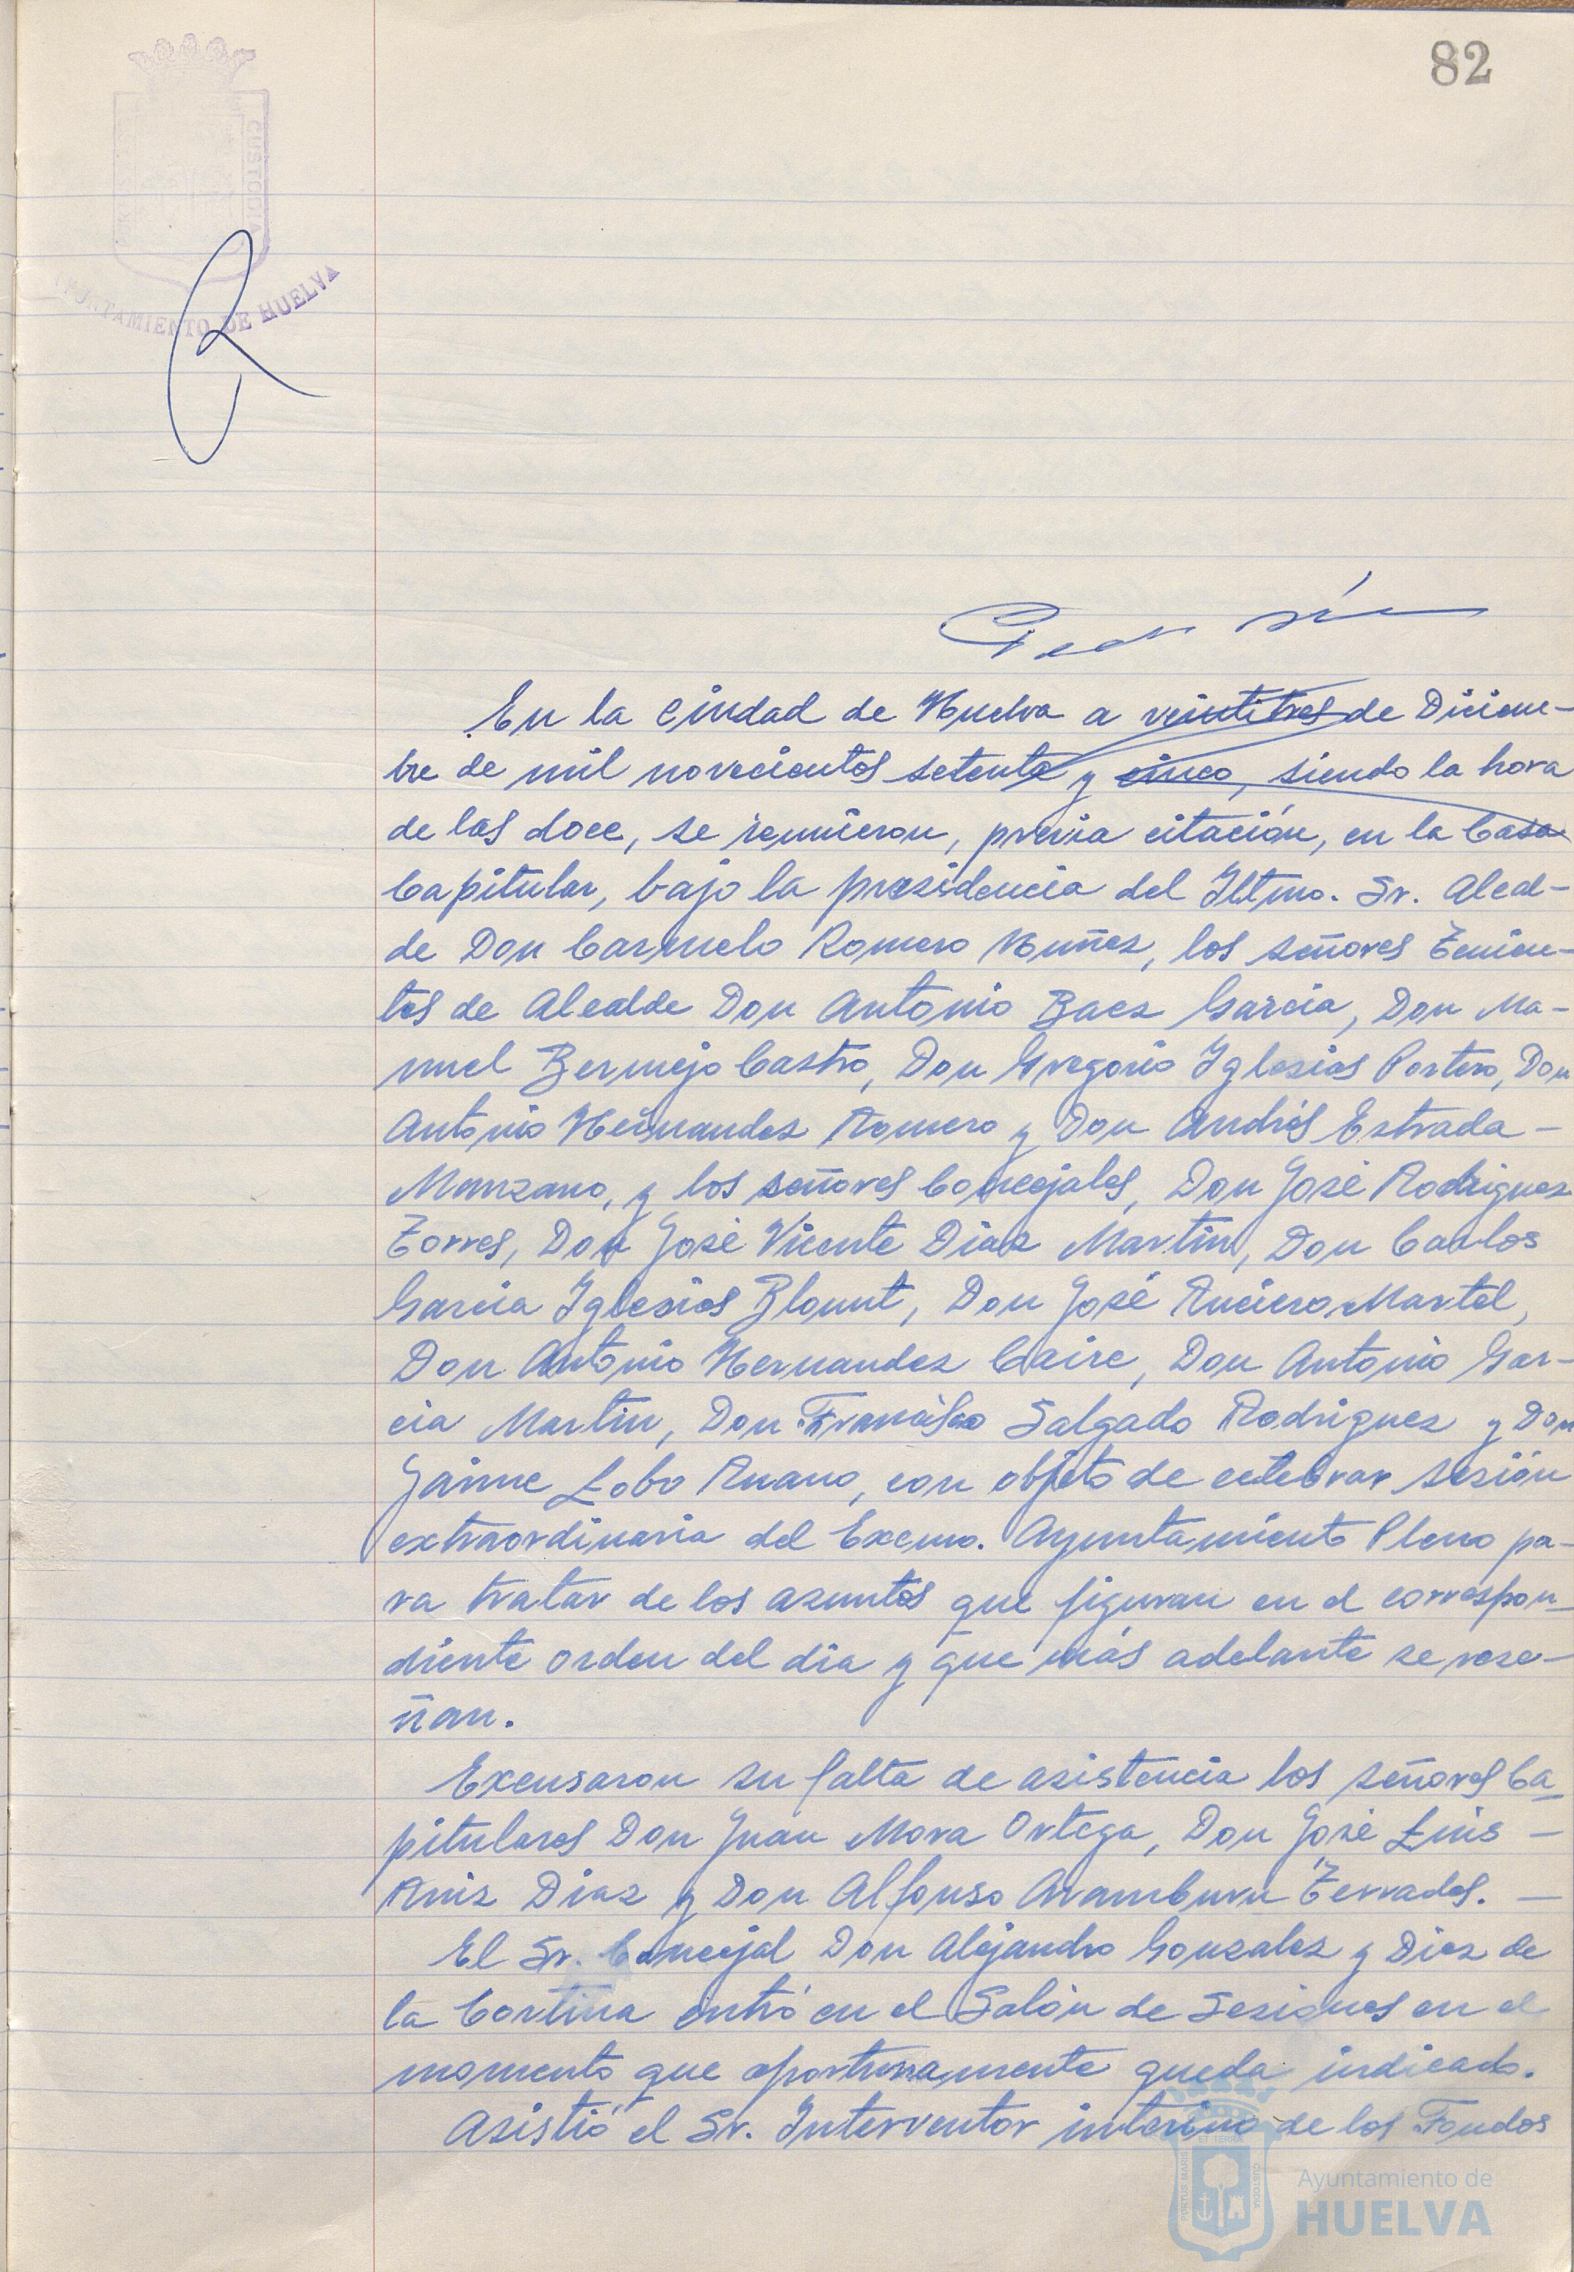 82
CUSTODIA
AYUNTAMIENTO DE HUELVA
En la Ciudad de Huelva a veintitres de Diciem-
bre de mil novecientos setenta y cinco, siendo la hora
de las doce, se reunieron, previa citación, en la Casa
Capitular, bajo la presidencia del Iltmo. Sr. Alcal-
de Don Carmelo Romero Nuñez, los señores Tenien-
tes de Alcalde Don Antonio Baez Garcia, Don Ma-
nuel Bermejo Castro, Don Gregorio Iglesias Portero, Don
Antonio Hernandez Romero y Don Andrés Estrada -
Manzano, y los señores Concejales, Don José Rodriguez
Torres, Don José Vicente Diaz Martin, Don Carlos
Garcia Iglesias Blount, Don José Ruciero Martel,
Don Antonio Hernandez Caire, Don Antonio Gar-
cia Martin, Don Francisco Salgado Rodriguez y Don
Jaime Lobo Ruano, con objeto de celebrar sesión
extraordinaria del Excmo. Ayuntamiento Pleno pa-
ra tratar de los asuntos que figuran en el correspon-
diente orden del dia y que más adelante se rese-
ñan.
Excusaron su falta de asistencia los señores Ca-
pitulares Don Juan Mora Ortega, Don José Luis -
Ruiz Diaz y Don Alfonso Aramburu Terrades. -
El Sr. Concejal Don Alejandro Gonzalez y Diez de
la Cortina entró en el Salón de Sesiones en el
momento que oportunamente queda indicado.
Asistió el Sr. Interventor interino de los Fondos
PORTUS MARIS ET TERRAE CUSTODIA
Ayuntamiento de
HUELVA